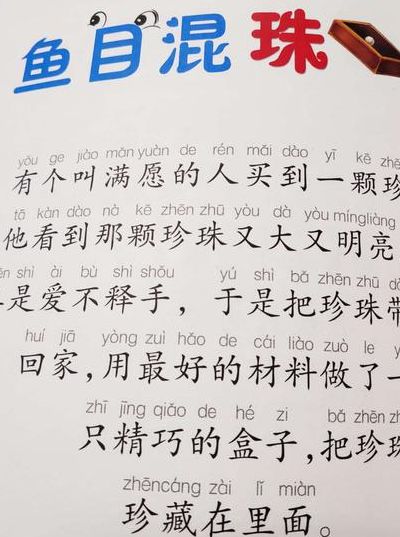 鱼目混珠
yǒu ge jiào mǎn yuàn de rén mǎi dào yī kē zhē
有个叫满愿的人买到一颗珍
tā kàn dào nà kē zhēn zhū yòu dà yòu míngliàng
他看到那颗珍珠又大又明亮
ēn shì ài bù shì shǒu yú shì bǎ zhēn zhū dà
是爱不释手，于是把珍珠带
huí jiā yòng zuì hǎo de cái liào zuò le y
回家，用最好的材料做了一
zhī jīng qiǎo de hé zi bǎ zhēn zh
只精巧的盒子，把珍珠
zhēncáng zài lǐ miàn
珍藏在里面。